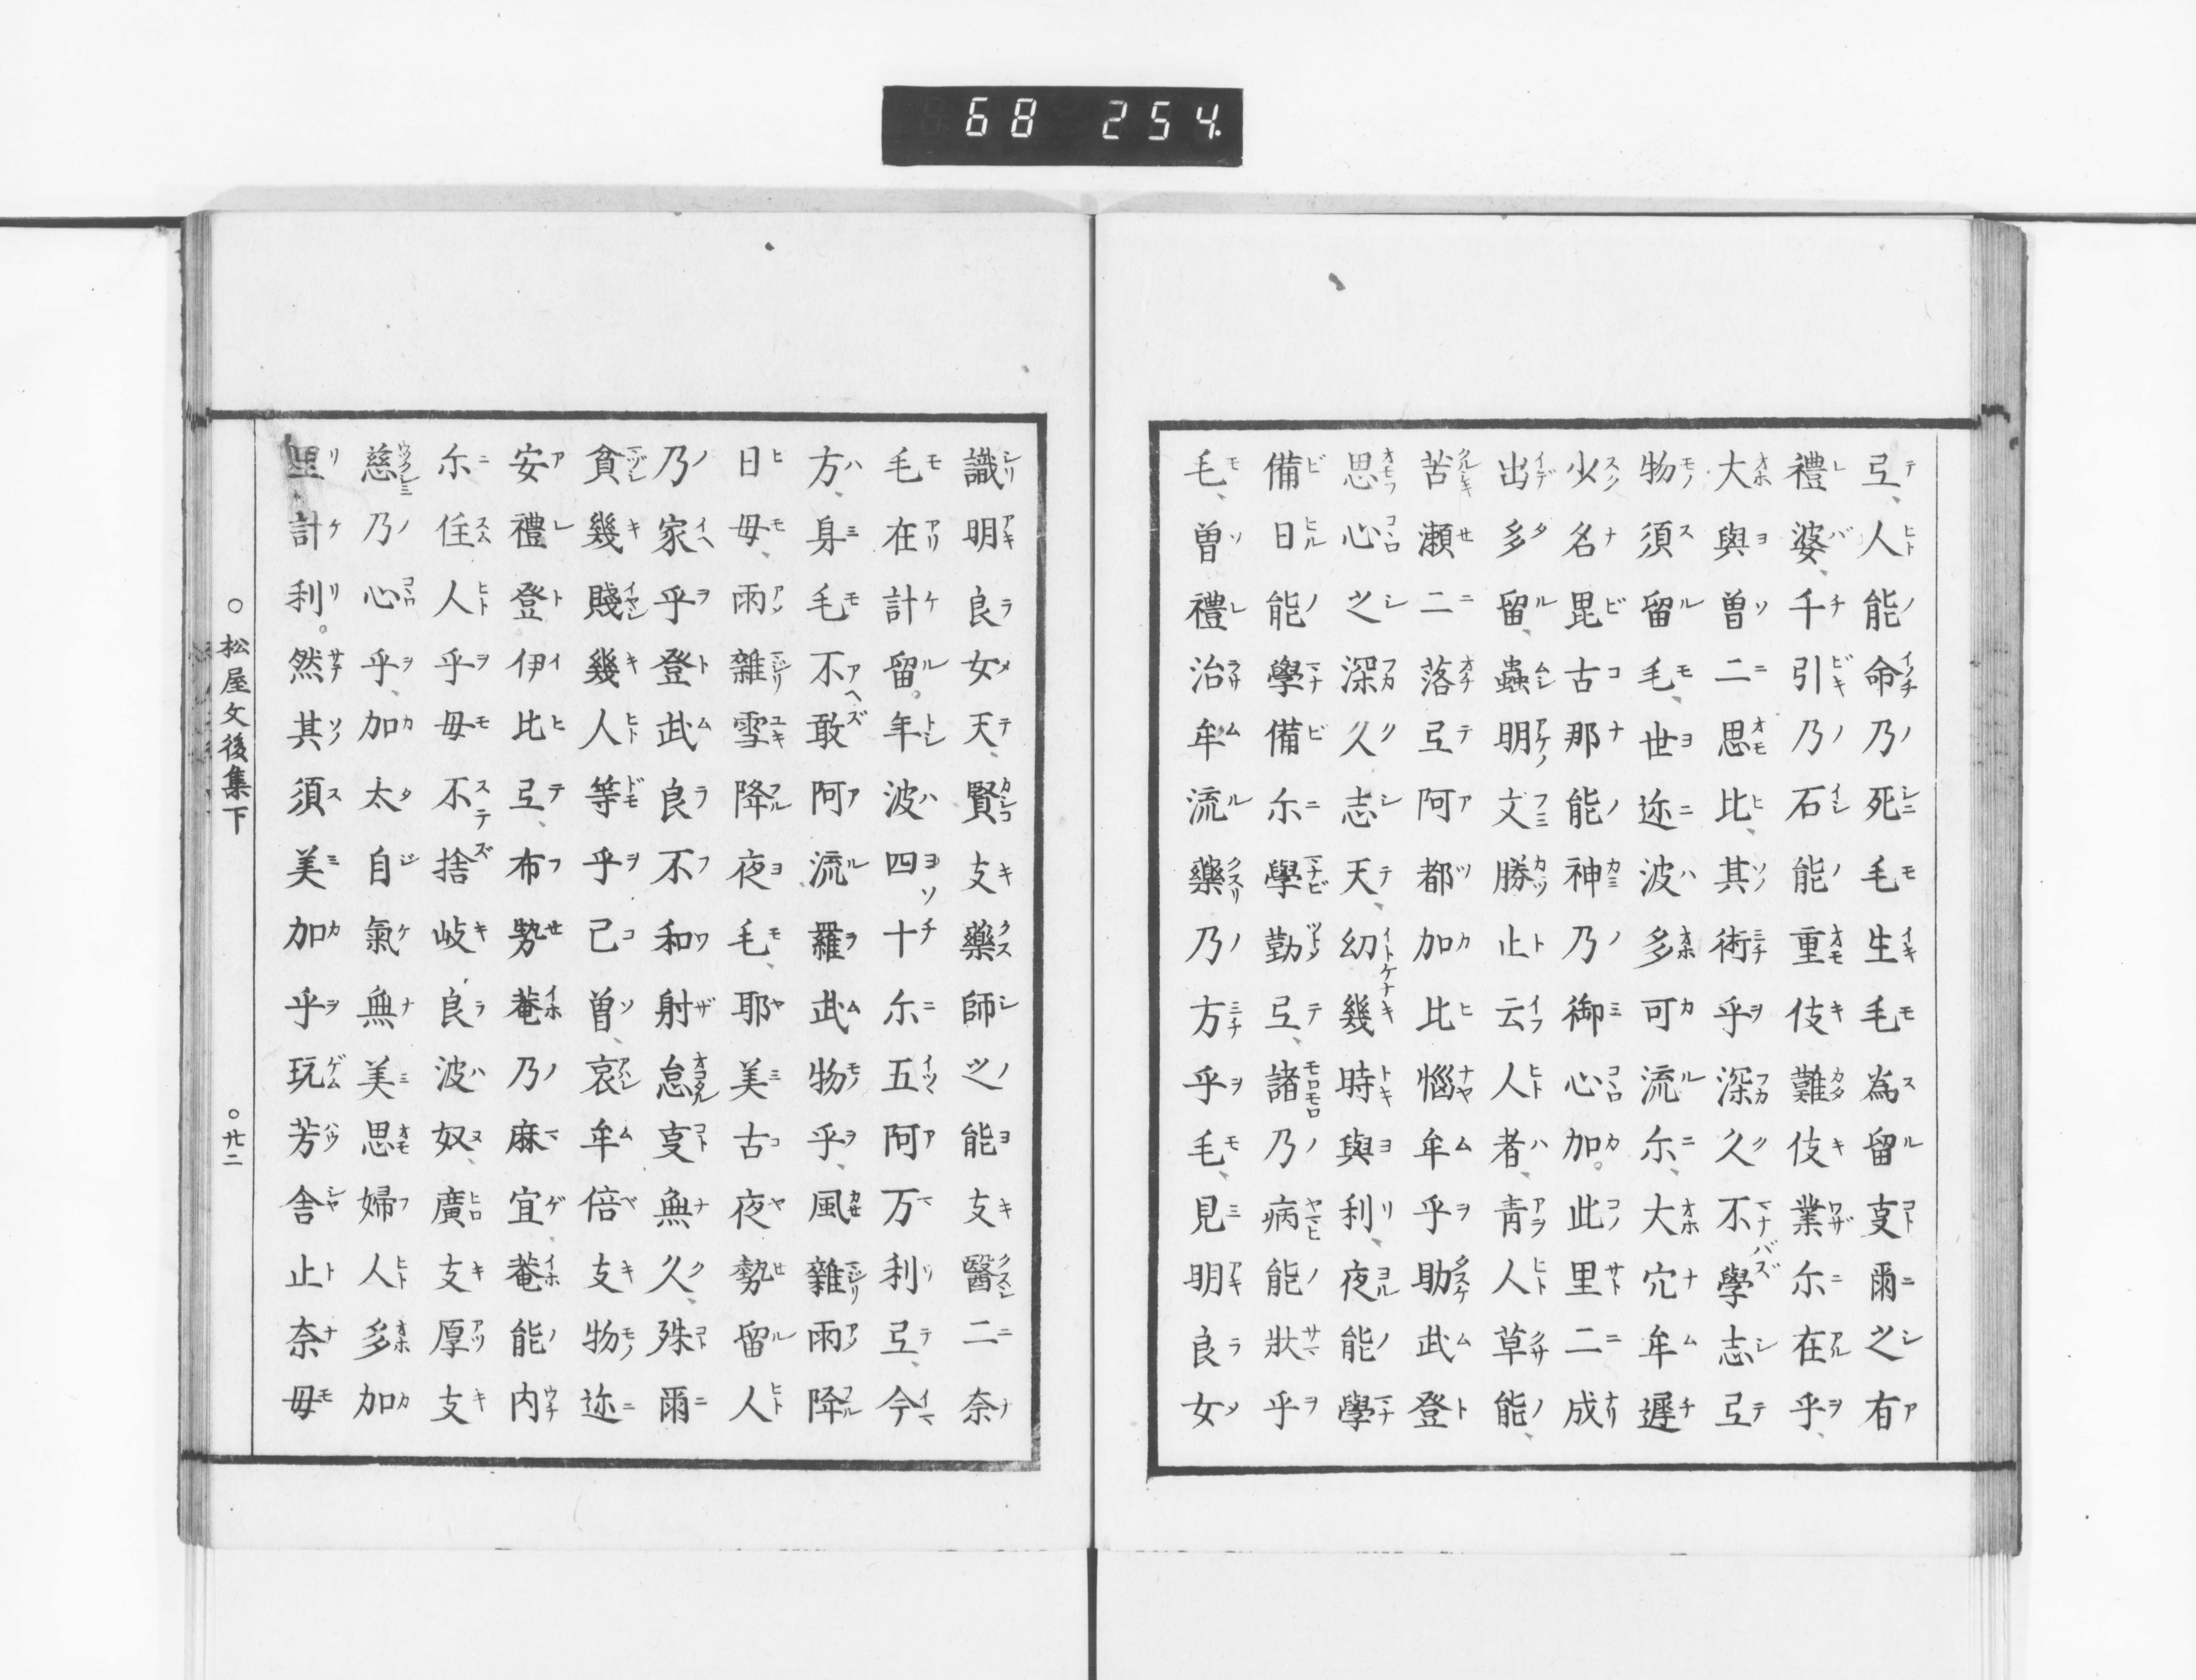 68 254.
弖、人能命乃死毛生毛為留叓爾之有
禮婆、千引乃石能重伎難伎業尓在乎、
大與曽二思比、其術乎深久不學志弖
物須留毛、世迩波多可流尓、大穴牟遲
少名毘古那能神乃御心加。此里二成
出多留、蟲明文勝止云人者、青人草能、
苦瀬二落弖阿都加比惱牟乎助武登
思心之深久志天、幼幾時與利、夜能學
備日能學備尓學勤弖、諸乃病能狀乎
毛、曽禮治牟流藥乃方乎毛、見明良女
識明良女天、賢支藥師之能支醫二奈
毛在計留。年波四十尓五阿万利弖、今
方、身毛不敢阿流羅武物乎、風雜雨降
日毋、雨雜雪降夜毛、耶美古夜勢留人
乃家乎登武良不和射怠叓無久、殊爾
貧幾賤幾人等乎己曽、哀牟倍支物迩
安禮登伊比弖、布勢菴乃麻宜、菴能内
尓住人乎毋不捨岐良波奴、廣支厚支
慈乃心乎、加太自氣無美思婦人多加
里計利。然其須美加乎玩芳舎止奈毋
○松屋文後集下 ○廿二